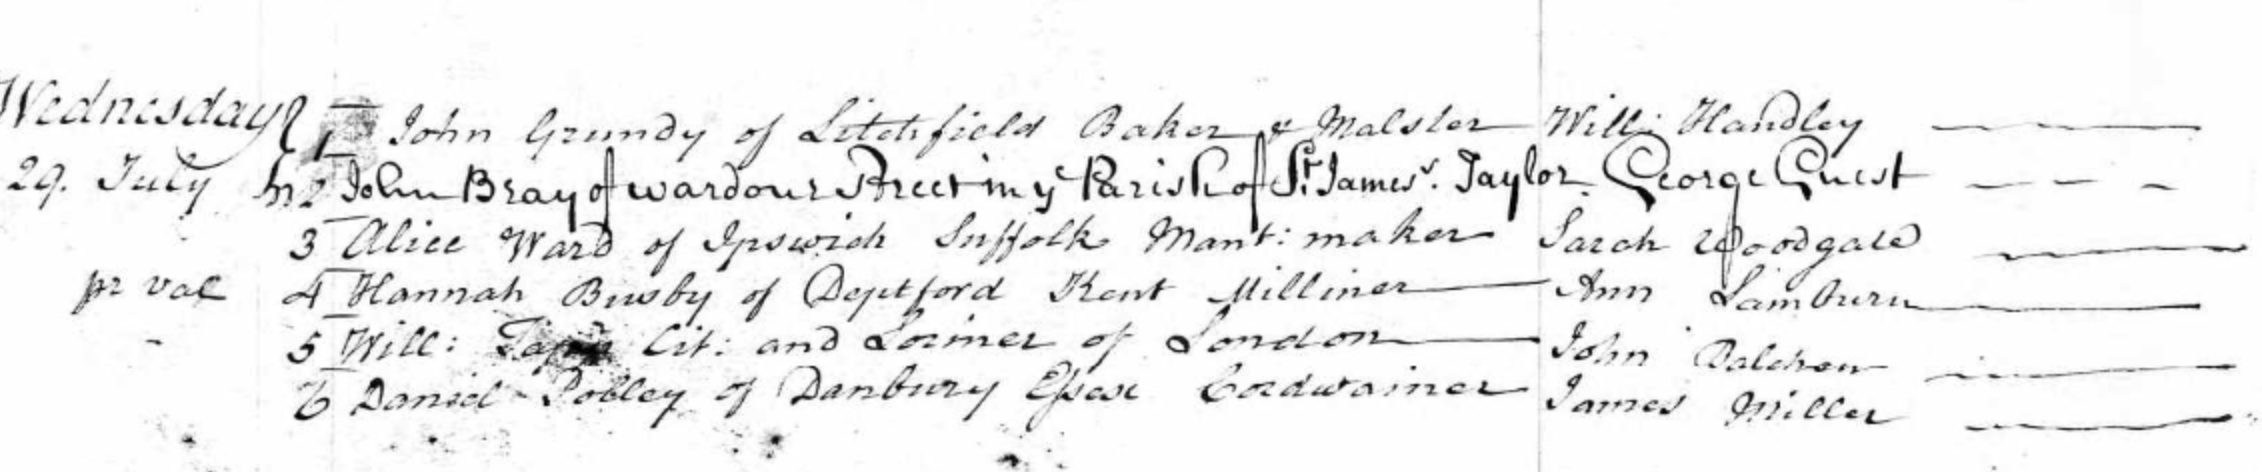 Wednesday 1 John Grundy of Litchfield Baker & Malster Will: Handley
29. July 2 John Bray of wardour Street in ye Parish of St. James's. Taylor. George Guest
3 Alice Ward of Ipswich Suffolk Mant: maker Sarah Woodgate
pr val 4 Hannah Busby of Deptford Kent Milliner Ann Lamburn
5 Will: Cit: and Lorimer of London John Balchen
6 Daniel of Danbury Essex Cordwainer James Miller